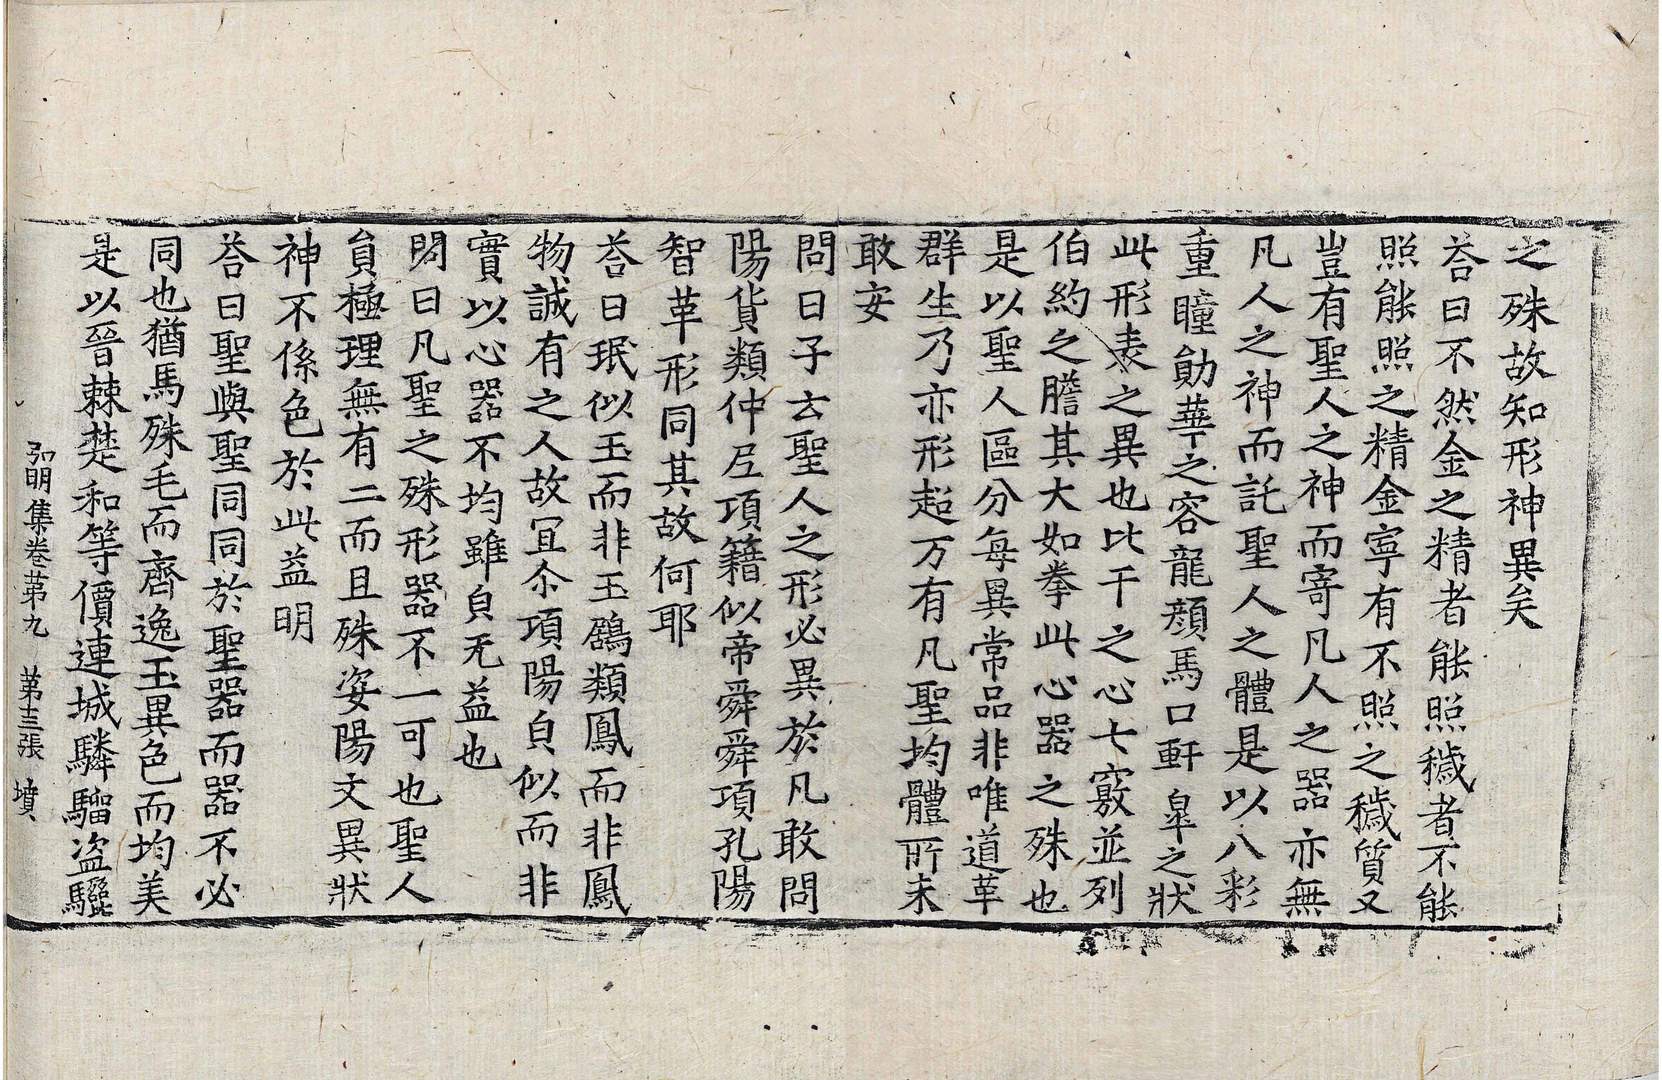 之殊故知形神異矣
荅曰不然金之精者能照穢者不能
照能照之精金寧有不照之穢質又
豈有聖人之神而寄凡人之器亦無
凡人之神而託聖人之體是以八彩
重瞳勛華之容龍顔馬口軒皐之狀
此形表之異也比干之心七竅並列
伯約之膽其大如拳此心器之殊也
是以聖人區分每異常品非唯道革
群生乃亦形超万有凡聖均體所未
敢安
問曰子云聖人之形必異於凡敢問
陽貨類仲尼項籍似帝舜舜項孔陽
智革形同其故何耶
荅曰珉似玉而非玉鷂類鳳而非鳳
物誠有之人故冝尒項陽皃似而非
實以心器不均雖皃无益也
問曰凡聖之殊形器不一可也聖人
負極理無有二而且殊姿陽文異狀
神不係色於此益明
荅曰聖與聖同同於聖器而器不必
同也猶馬殊毛而齊逸玉異色而均美
是以晉棘楚和等價連城驎騮盗驪
弘明集卷苐九　苐十三張　墳